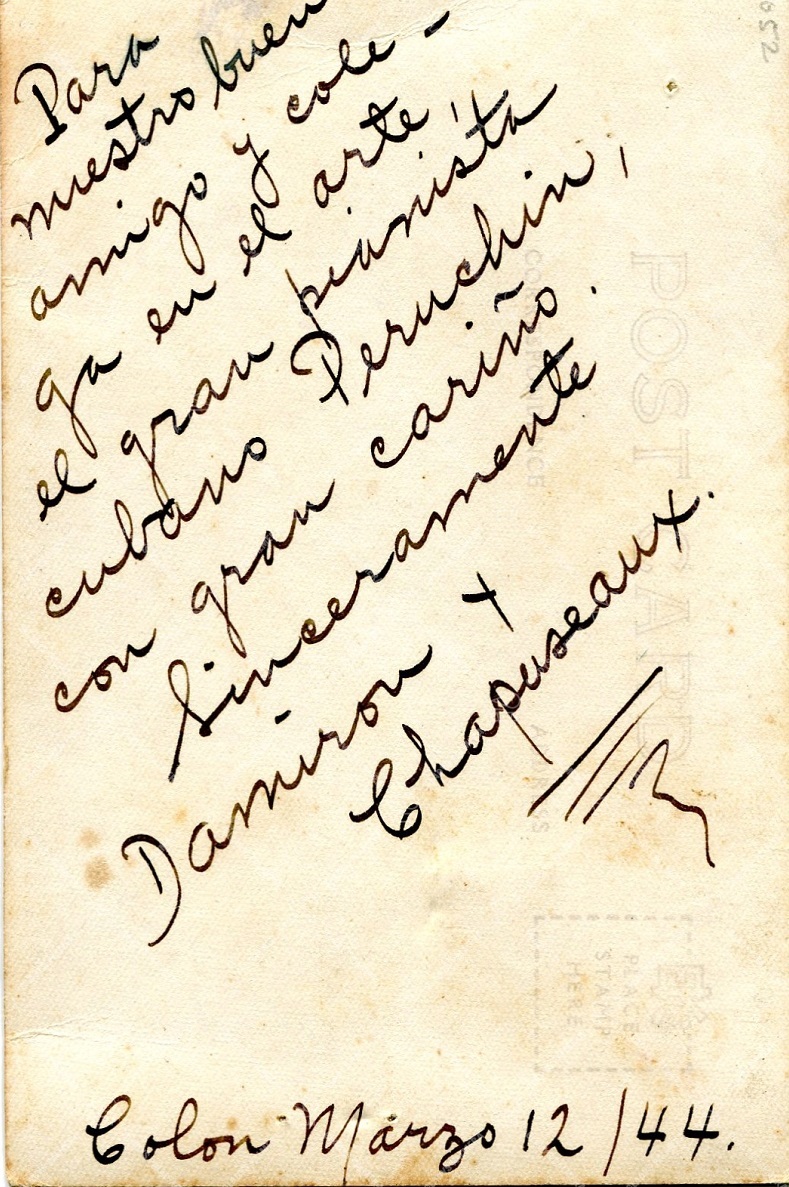 Para
nuestro buen
amigo y cole-
ga en el arte,
el gran pianista
cubano Peruchin,
con gran cariño.
Sinceramente
Damiron +
Chapuseaux.
Colon Marzo 12/44.
POST CARD
CORRESPONDENCE
ADDRESS
PLACE
STAMP
HERE